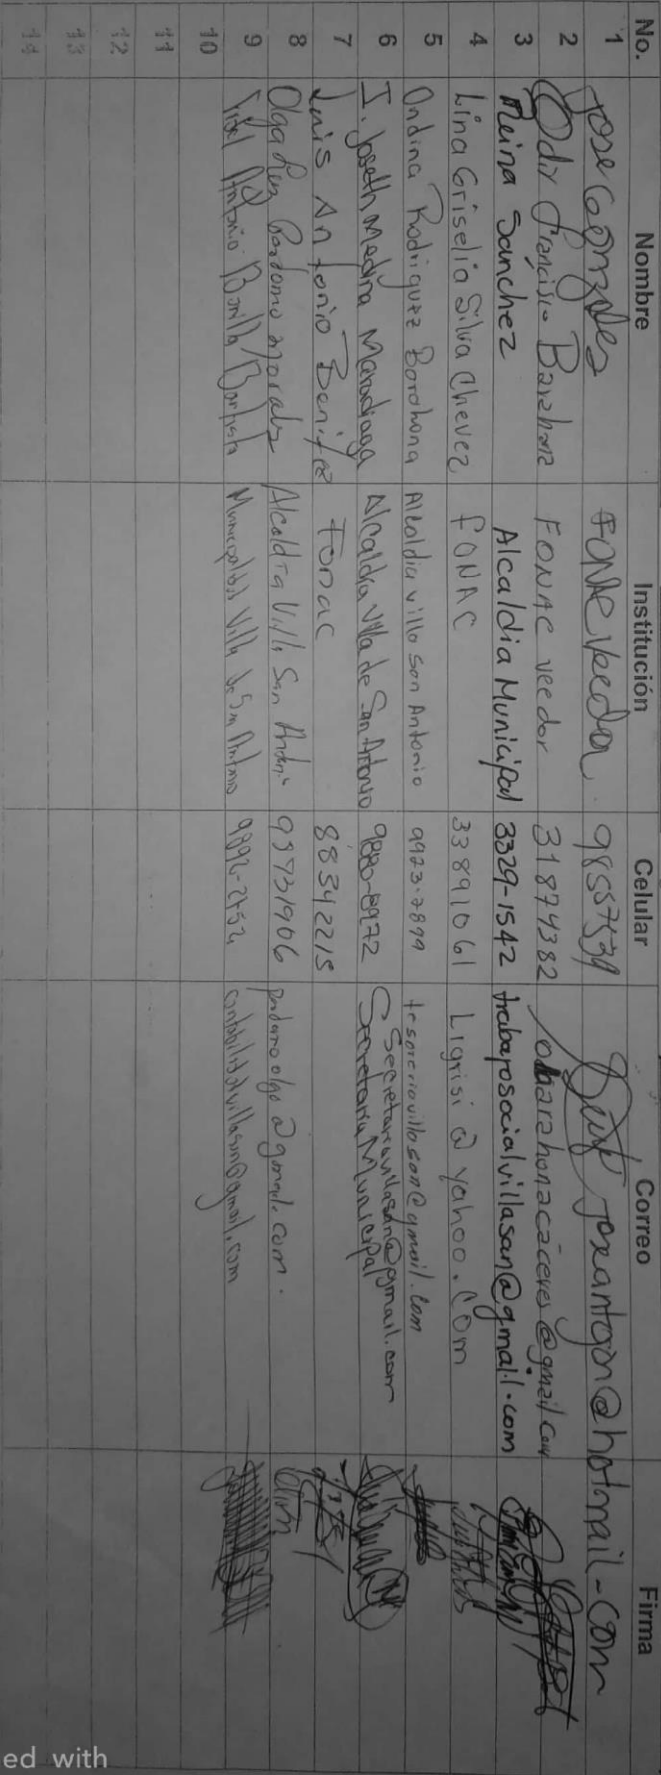 No. Nombre Institución Celular Correo Firma
1 Jose Gonzales FONAC Veedor. 98557539 joseantgon@hotmail-com
2 Odir Francisco Barahona FONAC veedor 31874382 odbarahonacaceres@gmail.com
3 Reina Sanchez Alcaldia Municipal 3329-1542 trabajosocialvillasan@gmail.com
4 Lina Griselia Silva Chevez FONAC 33891061 Ligrisi@yahoo.com
5 Ondina Rodriguez Barahona Alcaldia villa San Antonio 9923-7899 tesoreriavillasan@gmail.com
6 I. Joseth Medina Maradiaga Alcaldia Villa de San Antonio 9880-8972 Secretariavillasan@gmail.com
Secretaria Municipal
7 Luis Antonio Benitez Fonac 88342215
8 Olga Luz Perdomo Morales Alcaldia Villa San Antonio 93731906 perdomoolga@gmail.com.
9 Fidel Antonio Bonilla Bautista Municipalidad Villa de San Antonio 9892-2752 contabilidadvillasan@gmail.com
10
11
12
13
14
ed with